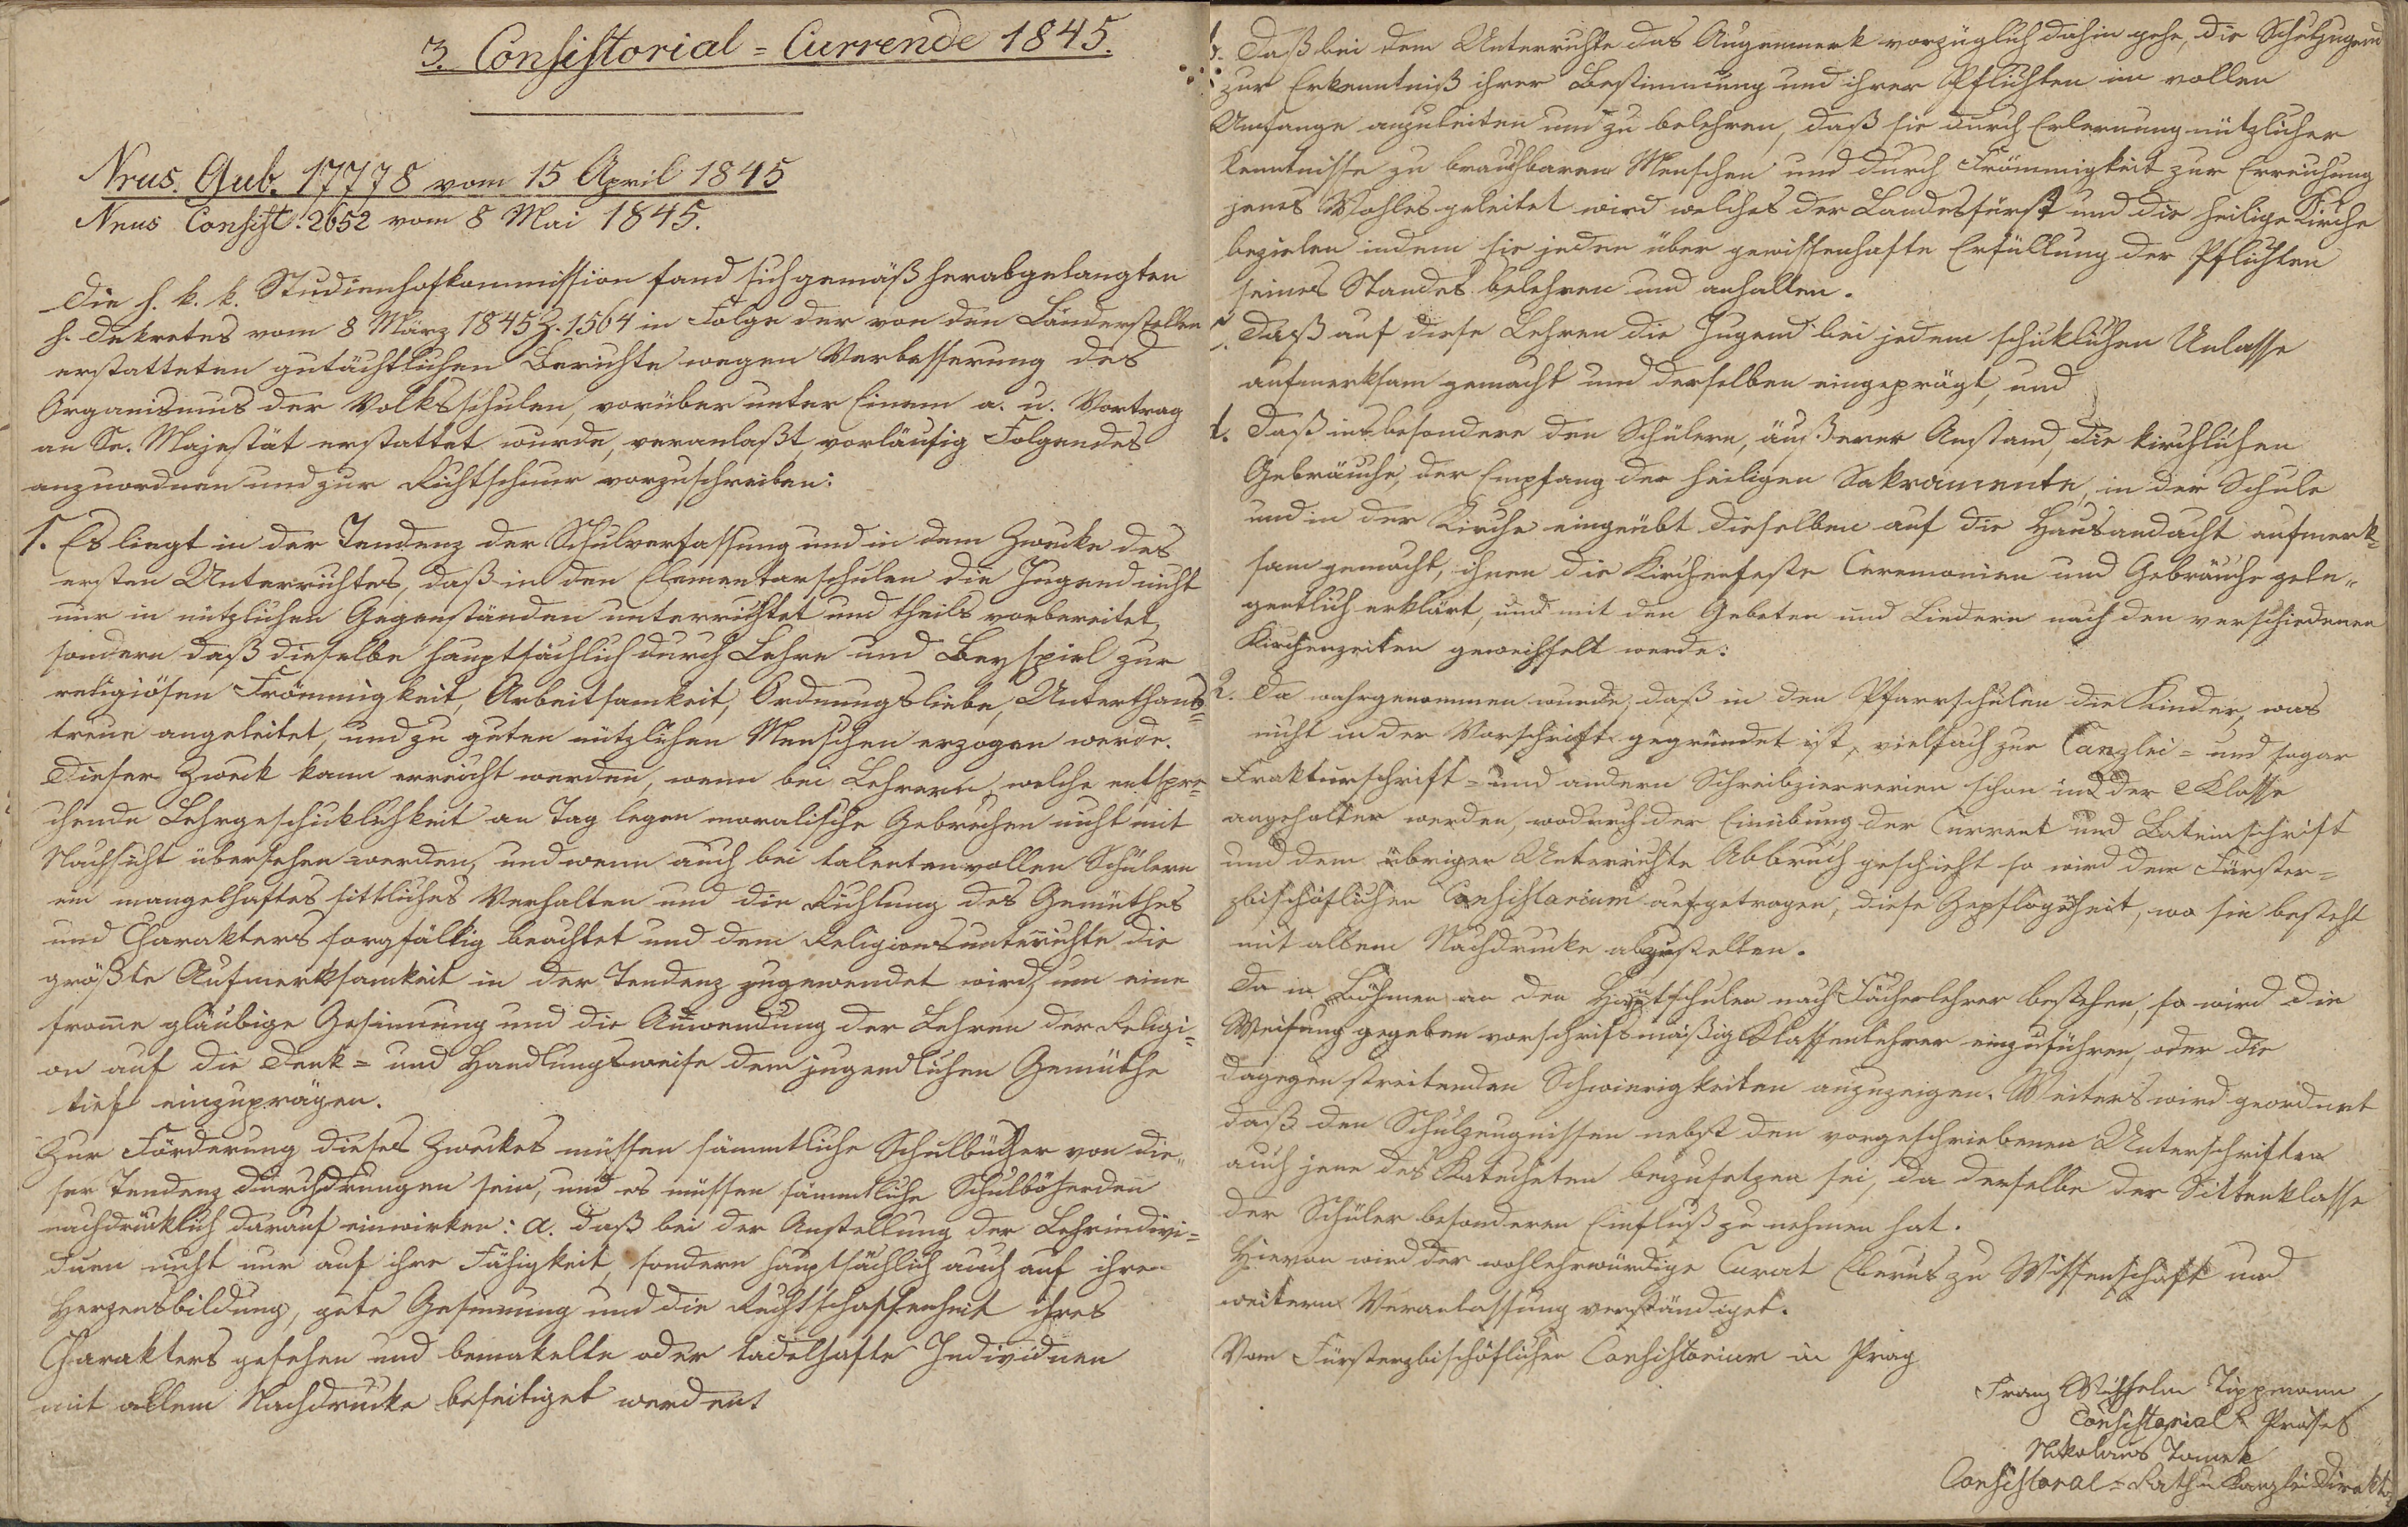 3. Consistorial=Currende 1845.
Nrus. Gub. 17778 vom 15 April 1845
Nrus Consist. 2652 vom 8 Mai 1845.
Die h. k. k. Studienhofkommission fand sich gemäß herabgelangten
h. Dekretes vom 8 März 1845 Z. 1564 in Folge der von den Länderstellen
erstatteten gutächtlichen Berichte wegen Verbesserung des
Organismus der Volksschulen, worüber unter Einem a. u. Vortrag
an Se. Majestät erstattet wurde, veranlaßt, vorläufig Folgendes
anzuordnen und zur Richtschnur vorzuschreiben:
1. Es liegt in der Tendenz der Schulverfassung und in dem Zwecke des
ersten Unterrichtes, daß in den Elementarschulen die Jugend nicht
nur in nützlichen Gegenständen unterrichtet und theils vorbereitet,
sondern daß dieselbe hauptsächlich durch Lehre und Beyspiel zur
religiösen Frömmigkeit, Arbeitsamkeit, Ordnungsliebe, Unterthans=
treue angeleitet, und zu guten nützlichen Menschen erzogen werde.
Dieser Zweck kann erreicht werden, wenn bei Lehrern, welche entspre=
chende Lehrgeschicklichkeit an Tag legen moralische Gebrechen nicht mit
Nachsicht übersehen werden, und wenn auch bei talentenvollen Schülern
ein mangelhaftes sittliches Verhalten und die Richtung des Gemüthes
und Charakters sorgfältig beachtet und dem Religionsunterrichte die
größte Aufmerksamkeit in der Tendenz zugewendet wird, um eine
from̄e gläubige Gesinnung und die Anwendung der Lehren der Religi=
on auf die Denk= und Handlungsweise dem jugendlichen Gemüthe
tief einzuprägen.
Zur Förderung dieses Zweckes müssen sämmtliche Schulbücher von die=
ser Tendenz durchdrungen sein, und es müssen sämmtliche Schulböherden
nachdrücklich darauf einwirken: a. daß bei der Anstellung der Lehrindivi=
duen nicht nur auf ihre Fähigkeit, sondern hauptsächlich auch auf ihre
Herzensbildung, gute Gesinnung und die Rechtschaffenheit ihres
Charakters gesehen und bemakelte oder tadelhafte Individuen
mit allem Nachdrucke beseitiget werden.
b. Daß bei dem Unterrichte das Augenmerk vorzüglich dahin gehe, die Schuljugend
zur Erkenntniß ihrer Bestimmung und ihrer Pflichten im vollen
Umfange anzuleiten und zu belehren, daß sie durch Erlernung nützlicher
Kenntnisse zu brauchbaren Menschen und durch Frömmigkeit zur Erreichung
jenes Wohles geleitet wird welches der Landesfürst und die heilige Kirche
bezielen indem sie jeden über gewissenhafte Erfüllung der Pflichten
seines Standes belehren und anhalten.
c. Daß auf diese Lehren die Jugend bei jedem schicklichen Anlasse
aufmerksam gemacht und derselben eingeprägt, und
d. Daß insbesondere den Schülern, äußerer Anstand, die kirchlichen
Gebräuche, der Empfang der heiligen Sakramente, in der Schule
und in der Kirche eingeübt dieselben auf die Hausandacht aufmerk=
sam gemacht, ihnen die Kirchenfeste Ceremonien und Gebräuche gele=
gentlich erklärt, und mit den Gebeten und Liedern nach den verschiedenen
Kirchenzeiten gewechselt werde.
2. Da wahrgenommen wurde, daß in den Pfarrschulen die Kinder, was
nicht in der Vorschrift gegründet ist, vielfach zur Canzlei= und sogar
Frakturschrift= und andern Schreibzierereien schon in der 2 Klasse
angehalten werden, wodurch der Einübung der Current und Lateinschrift
und dem übrigen Unterrichte Abbruch geschieht so wird dem Fürster=
zbischöflichen Consistorium aufgetragen, diese Gepflogenheit, wo sie besteht
mit allem Nachdrucke abzustellen.
Da in Böhmen an den Hauptschulen noch Fächerlehrer bestehen, so wird die
Weisung gegeben vorschriftsmäßig Klassenlehrer einzuführen, oder die
dagegen streitenden Schwierigkeiten anzuzeigen. Weiters wird geordnet
daß den Schulzeugnissen nebst den vorgeschriebenen Unterschriften
auch jene des Katecheten beizusetzen sei, da derselbe der Sittenklasse
der Schüler besonderen Einfluß zu nehmen hat.
Hievon wird der wohlehrwürdige Curat Clerus zu Wissenschaft und
weitern Veranlassung verständiget.
Vom Fürsterzbischöflichen Consistorium in Prag
Franz Wilhelm Tippmann
Consistorial=Präses
Nikolaus Tomek
Consistorial=Rath u Kanzlei Direktor